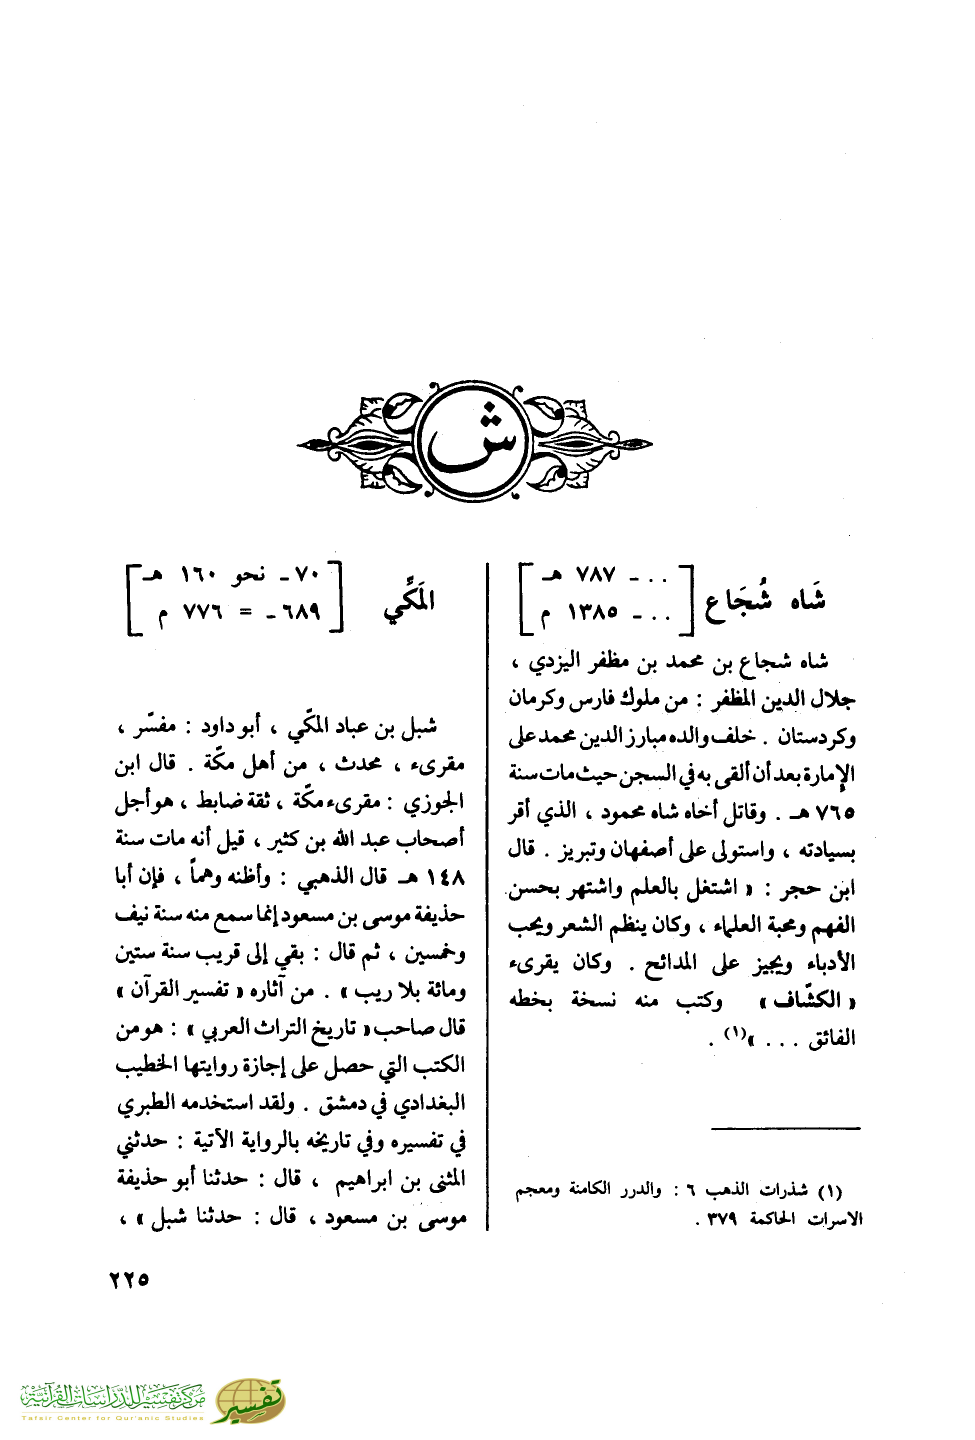 ش
شَاه شُجَاع
[ . . . ـ ٧٨٧ هـ
. . . ـ ١٣٨٥ م ]
شاه شجاع بن محمد بن مظفر اليزدي ،
جلال الدين المظفر : من ملوك فارس وكرمان
وكردستان . خلف والده مبارز الدين محمد على
الإمارة بعد أن ألقى به في السجن حيث مات سنة
٧٦٥ هـ . وقاتل أخاه شاه محمود ، الذي أقر
بسيادته ، واستولى على أصفهان وتبريز . قال
ابن حجر : « اشتغل بالعلم واشتهر بحسن
الفهم ومحبة العلماء ، وكان ينظم الشعر ويحب
الأدباء ويجيز على المدائح . وكان يقرىء
« الكشّاف » وكتب منه نسخة بخطه
الفائق . . . »(١) .
(١) شذرات الذهب ٦ : والدرر الكامنة ومعجم
الاسرات الحاكمة ٣٧٩ .
المَكِّي
[ ٧٠ ـ نحو ١٦٠ هـ
٦٨٩ ـ = ٧٧٦ م ]
شبل بن عباد المكّي ، أبو داود : مفسّر ،
مقرىء ، محدث ، من أهل مكّة . قال ابن
الجوزي : مقرىء مكّة ، ثقة ضابط ، هو أجل
أصحاب عبد الله بن كثير ، قيل أنه مات سنة
١٤٨ هـ قال الذهبي : وأظنه وهماً ، فإن أبا
حذيفة موسى بن مسعود إنما سمع منه سنة نيف
وخمسين ، ثم قال : بقي إلى قريب سنة ستين
ومائة بلا ريب » . من آثاره « تفسير القرآن »
قال صاحب « تاريخ التراث العربي » : هو من
الكتب التي حصل على إجازة روايتها الخطيب
البغدادي في دمشق . ولقد استخدمه الطبري
في تفسيره وفي تاريخه بالرواية الآتية : حدثني
المثنى بن ابراهيم ، قال : حدثنا أبو حذيفة
موسى بن مسعود ، قال : حدثنا شبل » ،
٢٢٥
مركز تفسير للدراسات القرآنية
Tafsir Center for Qur'anic Studies
تفسير